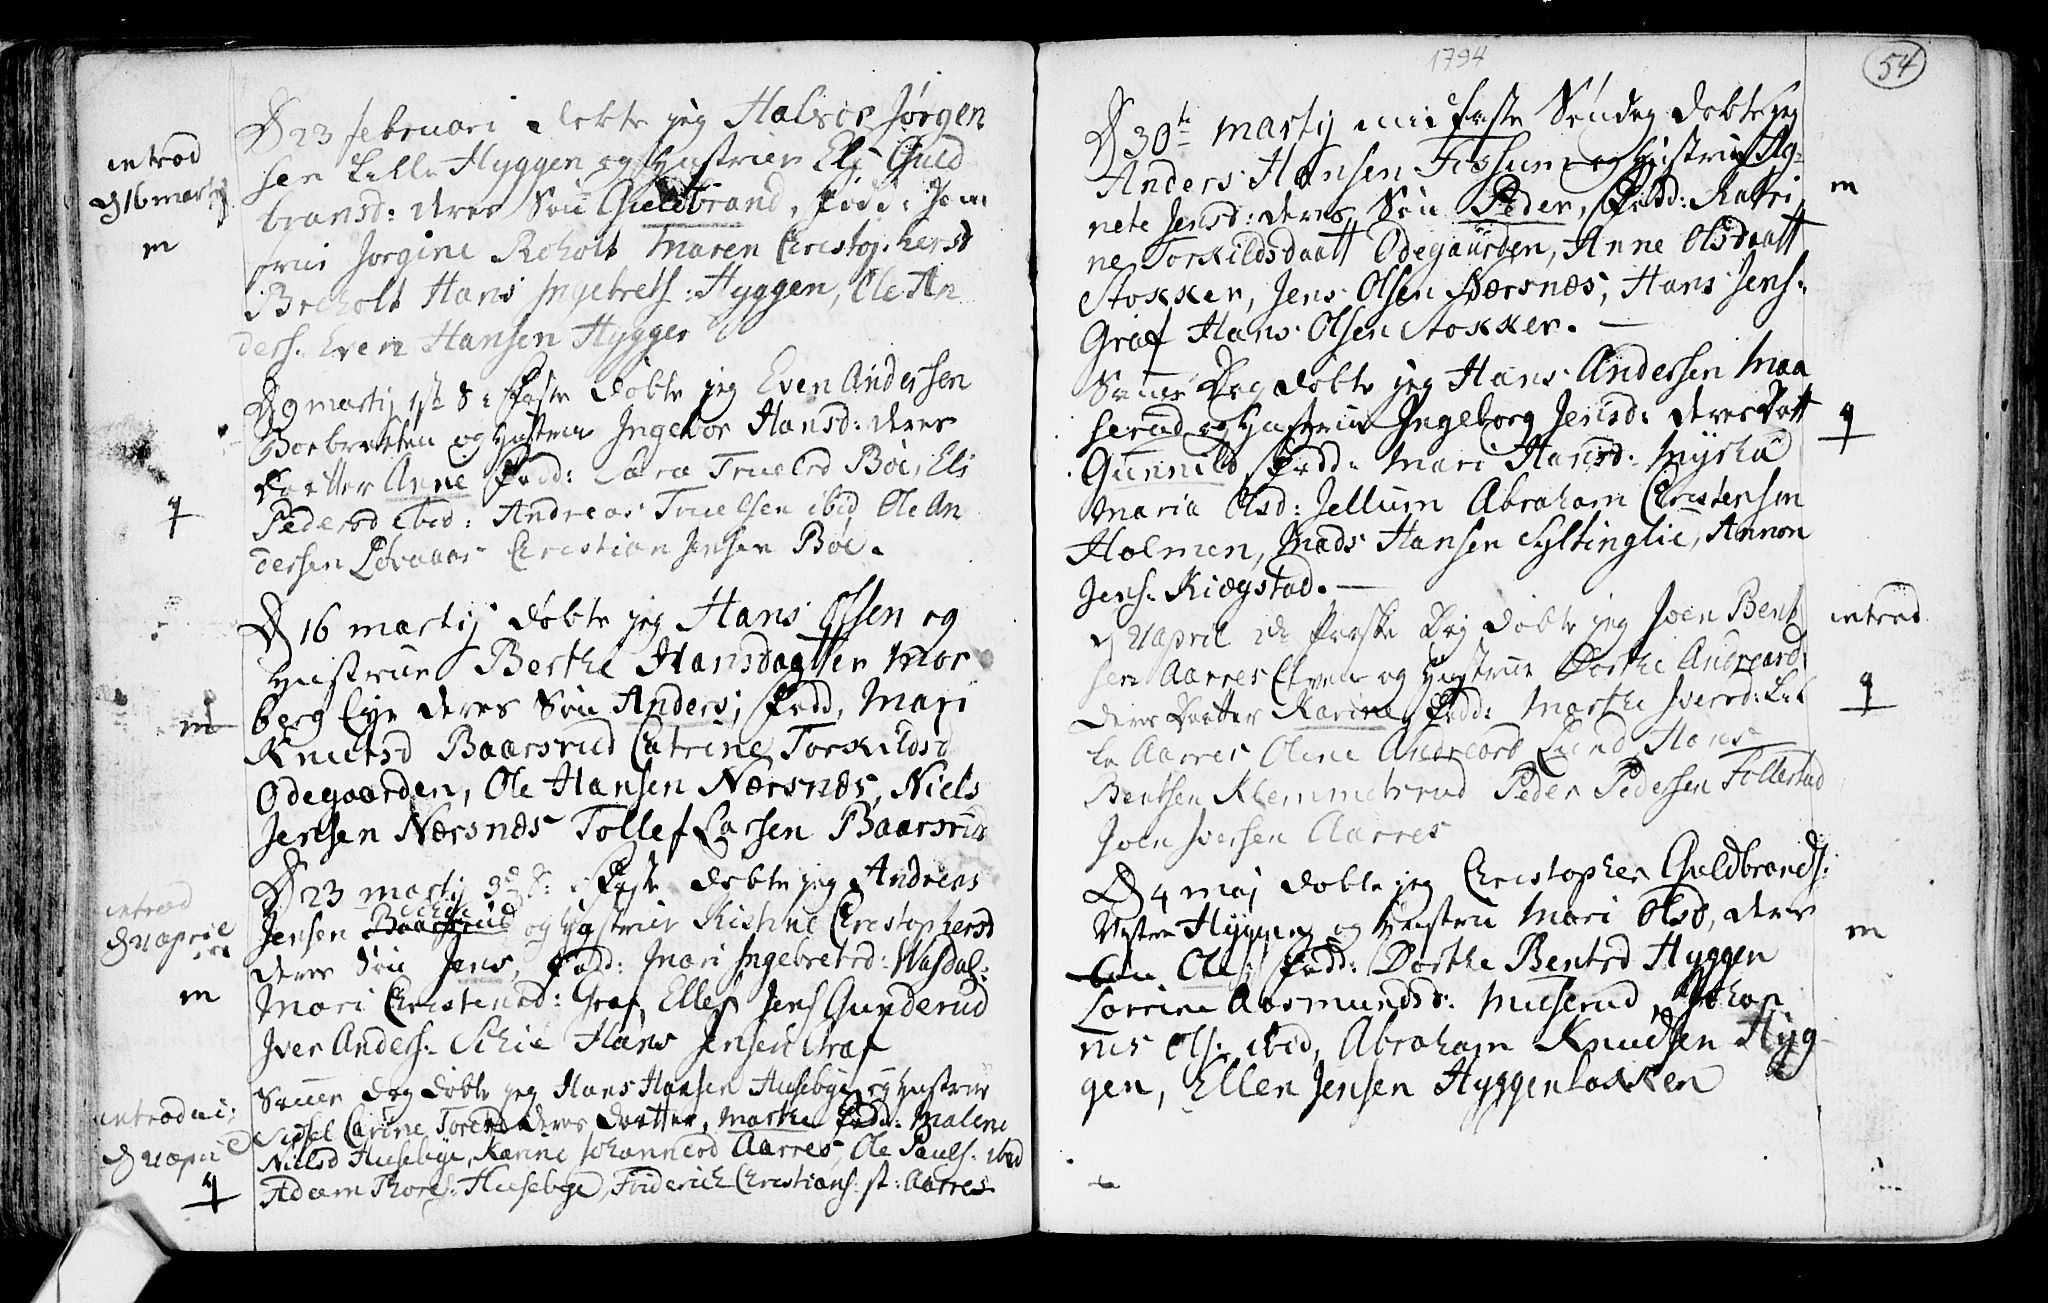 introd
D 16 martij
m
D 23 februari døbte jeg Halvor Jørgen
sen Lille Hyggen og Hustrue Eli Guld
bransd: deres Søn Guldbrand, Fadd: Jom
frue Jorgine Roholt Maren Christophersd
Breholt Hans Ingebrets: Hyggen, Ole An
ders. Even Hansen Hyggen
D 9 martij 1ste S: Faste døbte jeg Even Andersen
Boebraaten og Hustrue Ingebor Hansd: deres
Daatter Anne Fadd: Sara Truelsd Böe, Eli
q
Pedersd ibid: Andreas Truelsen ibid Ole An
dersen Lövaaas Christian Jensen Böe.
D 16 martij døbte jeg Hans Olsen og
Hustrue Berthe Hansdaatter Mor
m
berg Eye deres Søn Anders, Fadd, Mari
Knutsd Baarsrud Catrine Torkildsd
Odegaarden, Ole Hansen Nærsnæs, Niels
Jensen Nærsnæs Tollef Larsen Baarsrud
introd
D 21 april
m
D 23 martij 3d S: Faste døbte jeg Andreas
Schie
Jensen Baarsrud og Hustrue Kistine Christophersd
deres Søn Jens, Fadd: Mari Ingebretsd: Wasdal:
m
Mari Christensd: Graf, Ellef Jens Gunderud
Iver Anders. Schie Hans Jensen Graf
introduc:
D 21 april
q
Samme Dag døbte jeg Hans Hansen Husebye og Hustrue
Sidsel Carine Toresd deres Daatter, Marthe Fadd: Malene
Nielsd Husebye, Karine Johannesd Aarres, Ole Pauls. ibid
Adam Thores: Husebye, Friderich Christians: st: Aarres
1794
54
D 30te martij mid Faste Søndag døbte jeg
Anders Hansen Fossum og Hustrue Ag-
m
nete Jensd: deres Søn Peder, Fadd: Katri
ne Torkildsdaatt Odegaarden, Anne Olsdaatt
Stokker, Jens Olsen Nærsnæs, Hans Jens.
Graf Hans Olsen Stokker.
Samme Dag døbte jeg Hans Andersen Maa
q
serud og Hustrue Ingeborg Jensd: deres Datt
Gunnild Fadd: Mari Hansd: Myhra
Maria Olsd: Jellum Abraham Christensen
Holmen, Mads Hansen Syltinglie, Ammon
Jens. Kiøgstad.
introd
D 21 april 2d Paaske Dag døbte jeg Joen Bent
sen Aarres Elven og Hustrue Dorthe Andreasd:
q
deres Daatter Karine, Fadd: Marthe Iversd: Lil
le Aarres Oline Andreasd Lund Hans
Bentsen Klemmetsrud Peder Pedersen Follestad
Joen Iversen Aarres
D 4 maj døbte jeg Christopher Guldbrands.
m
Vestre Hyggen og Hustrue Mari Olsd, deres
Søn Ole, Fadd: Dorthe Bentsd Hyggen
Lorrine Aasmundsd: Muserud, Johan
nes Ols: ibid, Abraham Knudsen Hyg
gen, Ellen Jensen Hyggenløkken